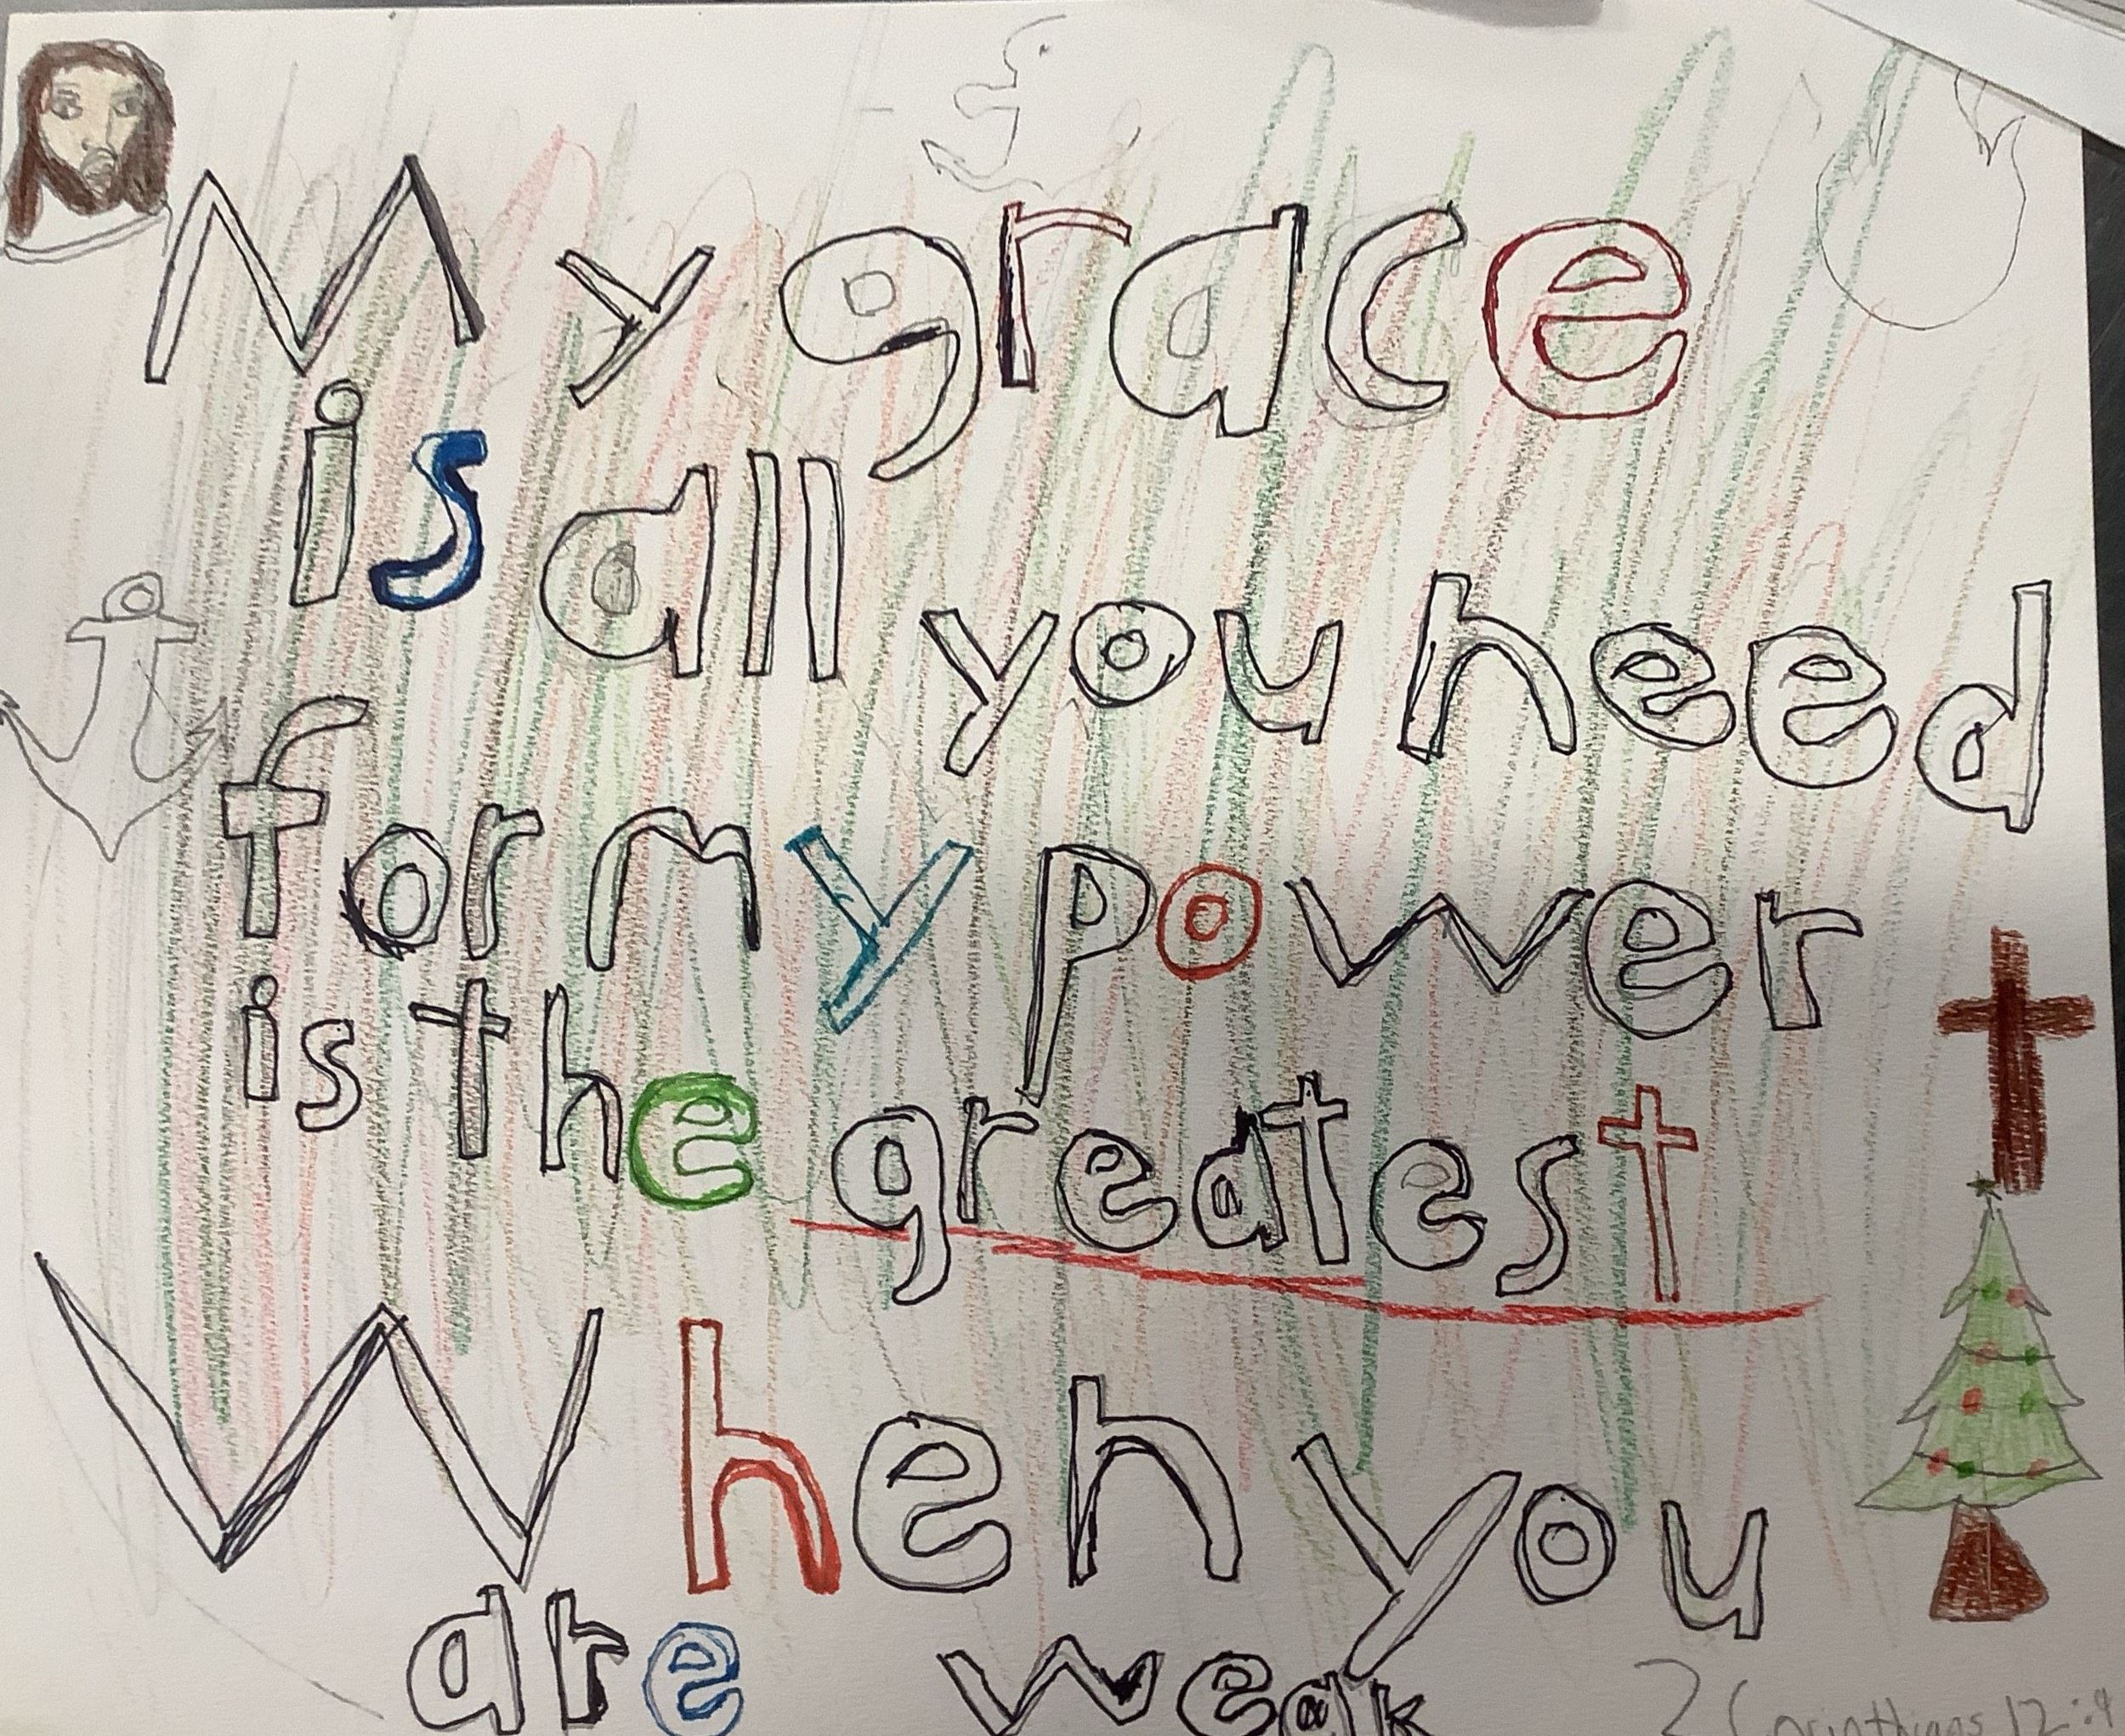 My grace
is all you need
for my power
is the greatest
When you
are weak
2 Corinthians 12:9